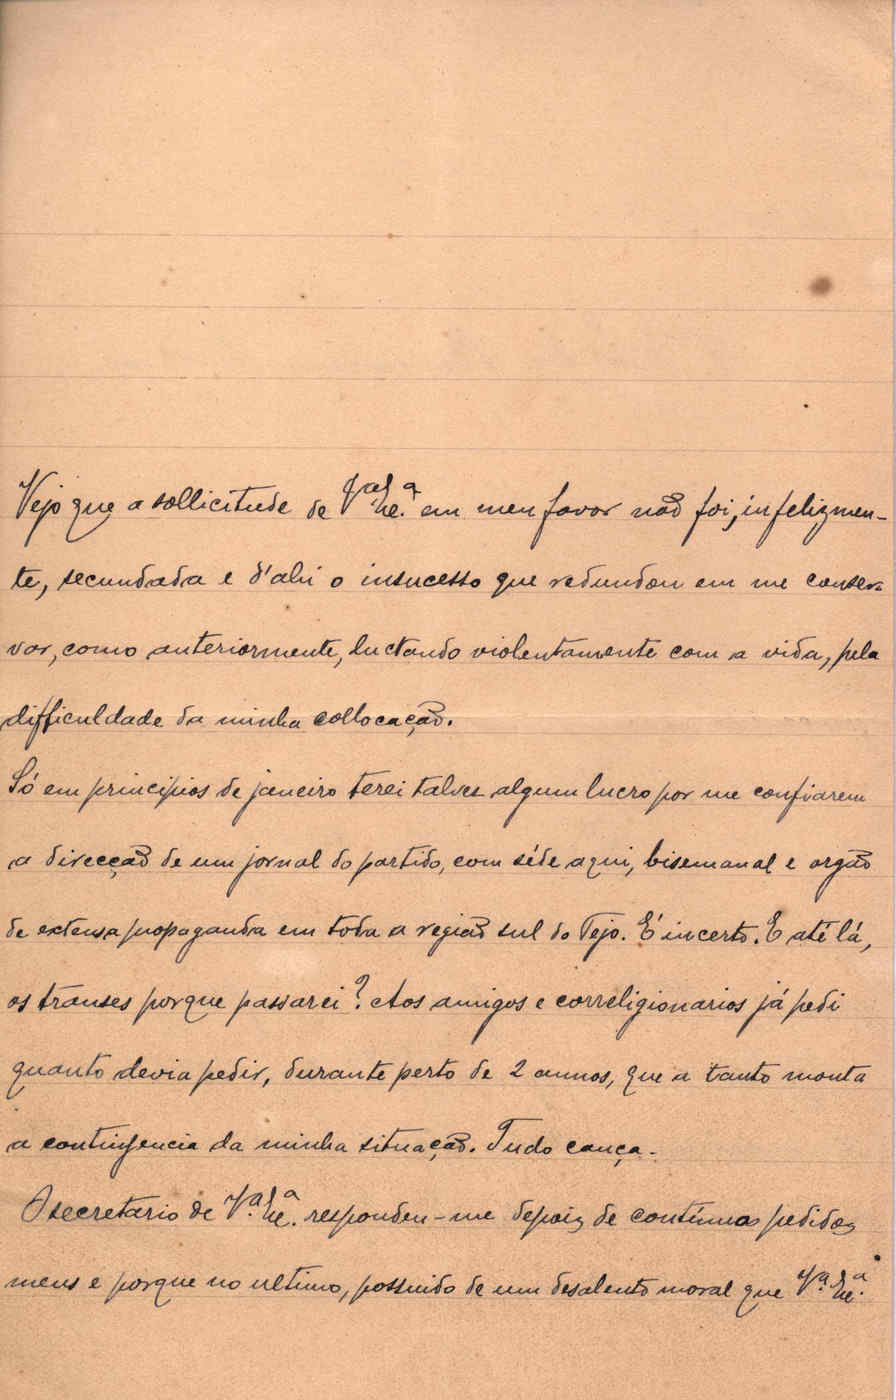 Vejo que a sollicitude de Vª Exª. em meu favor não foi, infelizmen-
te, secundada e d'ahi o insucesso que redundou em me conser-
var, como anteriormente, luctando violentamente com a vida, pela
difficuldade da minha collocação.
Só em principios de janeiro terei talvez algum lucro por me confiarem
a direcção de um jornal do partido, com séde aqui, bisemanal e orgão
de extensa propaganda em toda a região sul do Tejo. É incerto. E até lá,
os transes porque passarei? Aos amigos e correligionarios já pedi
quanto devia pedir, durante perto de 2 annos, que a tanto monta
a contingencia da minha situação. Tudo cança.
O secretario de Vª. Exª. respondeu-me depois de contínuos pedidos
meus e porque no ultimo, possuido de um desalento moral que Vª. Exª.